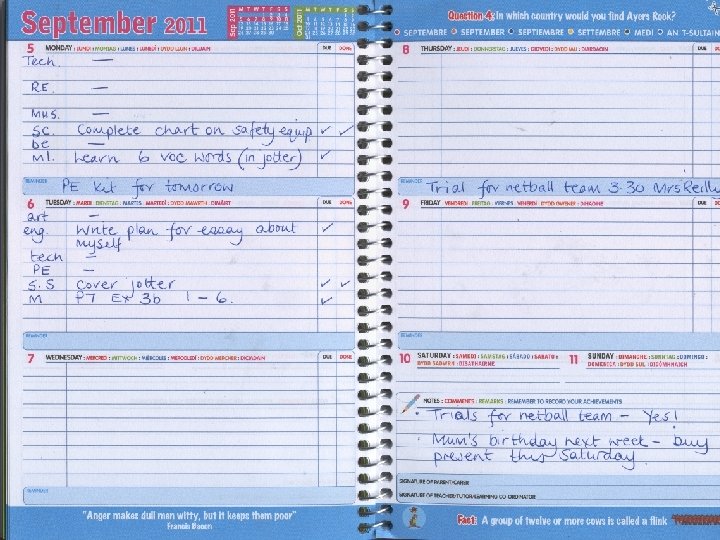 September 2011
Sep 2011
M T W T F S S
Oct 2011
M T W T F S S
5 MONDAY : LUNDI : MONTAG : LUNES : LUNEDÌ : DYDD LLUN : DILUAIN
DUE DONE
Tech. —
R.E. —
Mus. —
SC. Complete chart on safety equip ✓ ✓
be —
Ml. Learn 6 voc words (in jotter) ✓
REMINDER
PE kit for tomorrow
6 TUESDAY : MARDI : DIENSTAG : MARTES : MARTEDÌ : DYDD MAWRTH : DIMÁIRT
DUE DONE
art —
eng. Write plan for essay about ✓
myself
tech —
PE —
S.S Cover jotter ✓ ✓
M P7 Ex 3b 1 – 6. ✓
REMINDER
7 WEDNESDAY : MERCREDI : MITTWOCH : MIÉRCOLES : MERCOLEDÌ : DYDD MERCHER : DICÉADAIN
DUE DONE
REMINDER
"Anger makes dull men witty, but it keeps them poor"
Francis Bacon
Question 4: In which country would you find Ayers Rock?
SEPTEMBRE SEPTEMBER SEPTIEMBRE SETTEMBRE MEDI AN T-SULTAIN
8 THURSDAY : JEUDI : DONNERSTAG : JUEVES : GIOVEDÌ : DYDD IAU : DIARDAOIN
DUE
REMINDER
Trial for netball team 3-30 Mrs Reilly
9 FRIDAY VENDREDI : FREITAG : VIERNES : VENERDÌ : DYDD GWENER : DIHAOINE
DUE
REMINDER
10 SATURDAY : SAMEDI : SAMSTAG : SÁBADO : SABATO :
DYDD SADWRN : DISATHAIRNE
11 SUNDAY : DIMANCHE : SONNTAG : DOMINGO :
DOMENICA : DYDD SUL : DIDÓMHNAIGH
NOTES : COMMENTS : REMARKS : REMEMBER TO RECORD YOUR ACHIEVEMENTS
· Trials for netball team – Yes!
· Mum's birthday next week – buy
present this Saturday.
SIGNATURE OF PARENT/CARER
SIGNATURE OF TEACHER/TUTOR/LEARNING CO-ORDINATOR
Fact: A group of twelve or more cows is called a flink